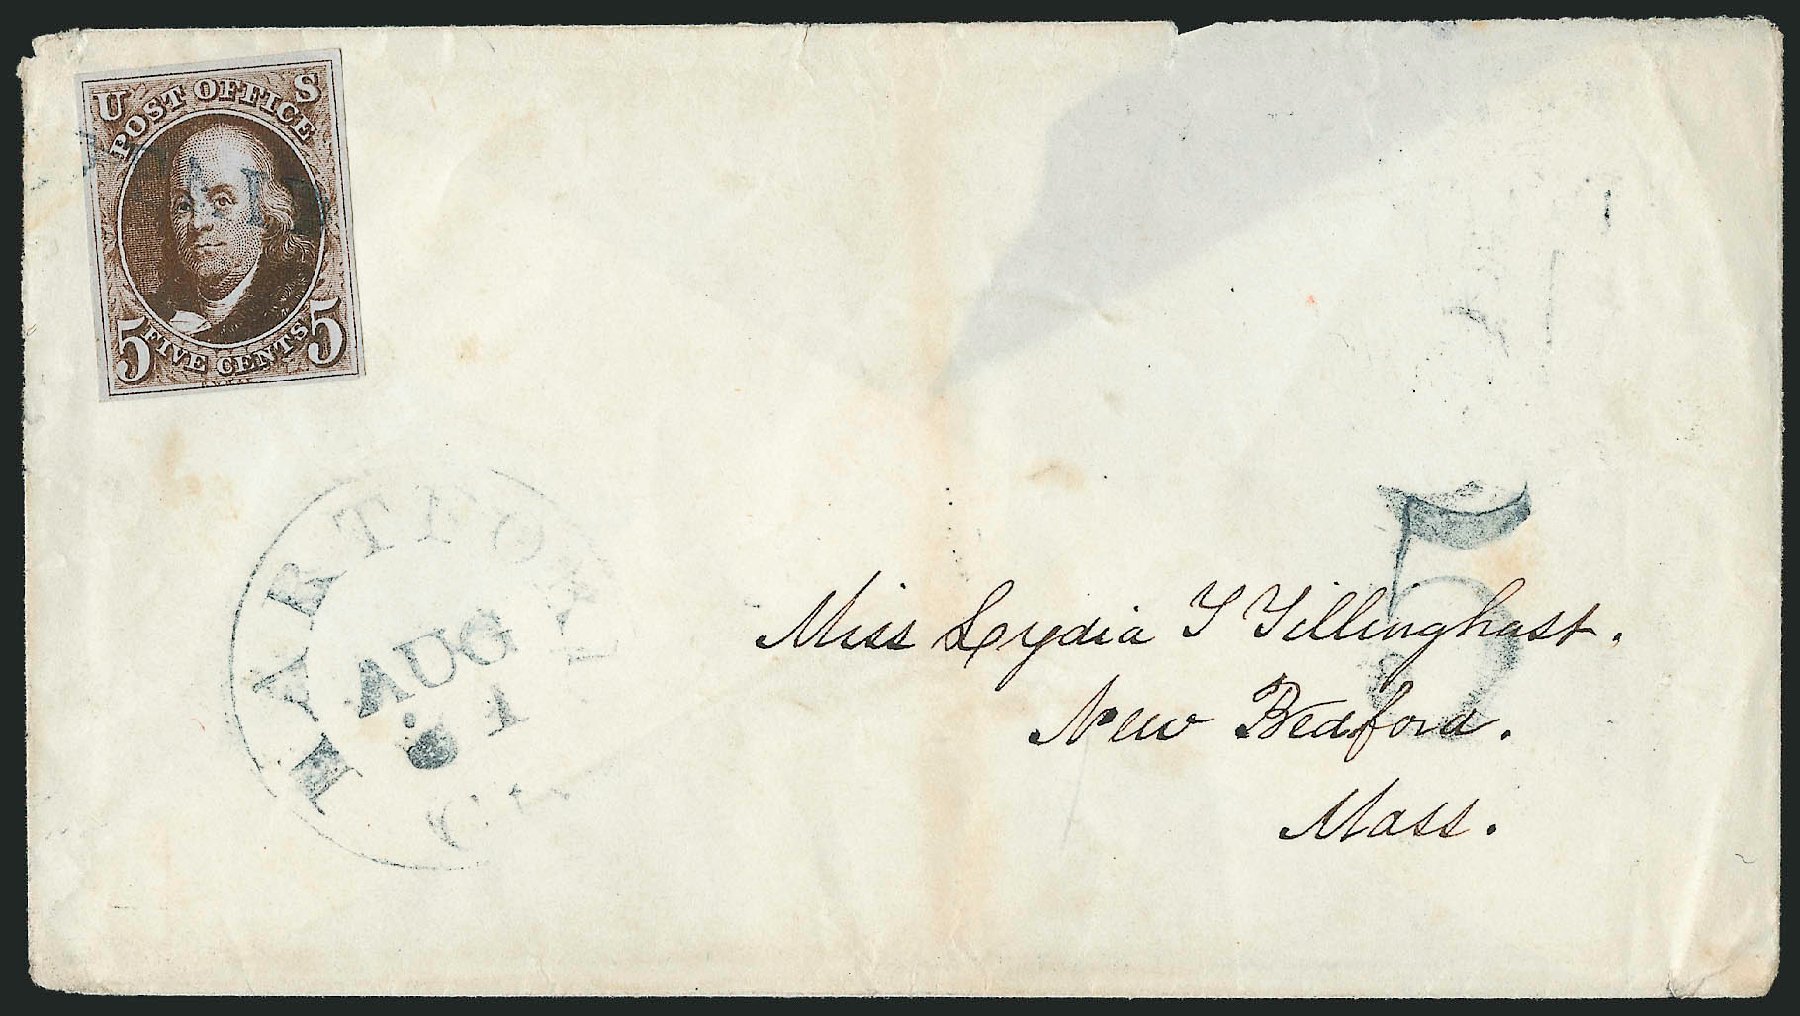 U S
POST OFFICE
PAID
5 FIVE CENTS 5
HARTFORD
AUG
5
Miss Lydia T Tillinghast.
New Bedford.
Mass.